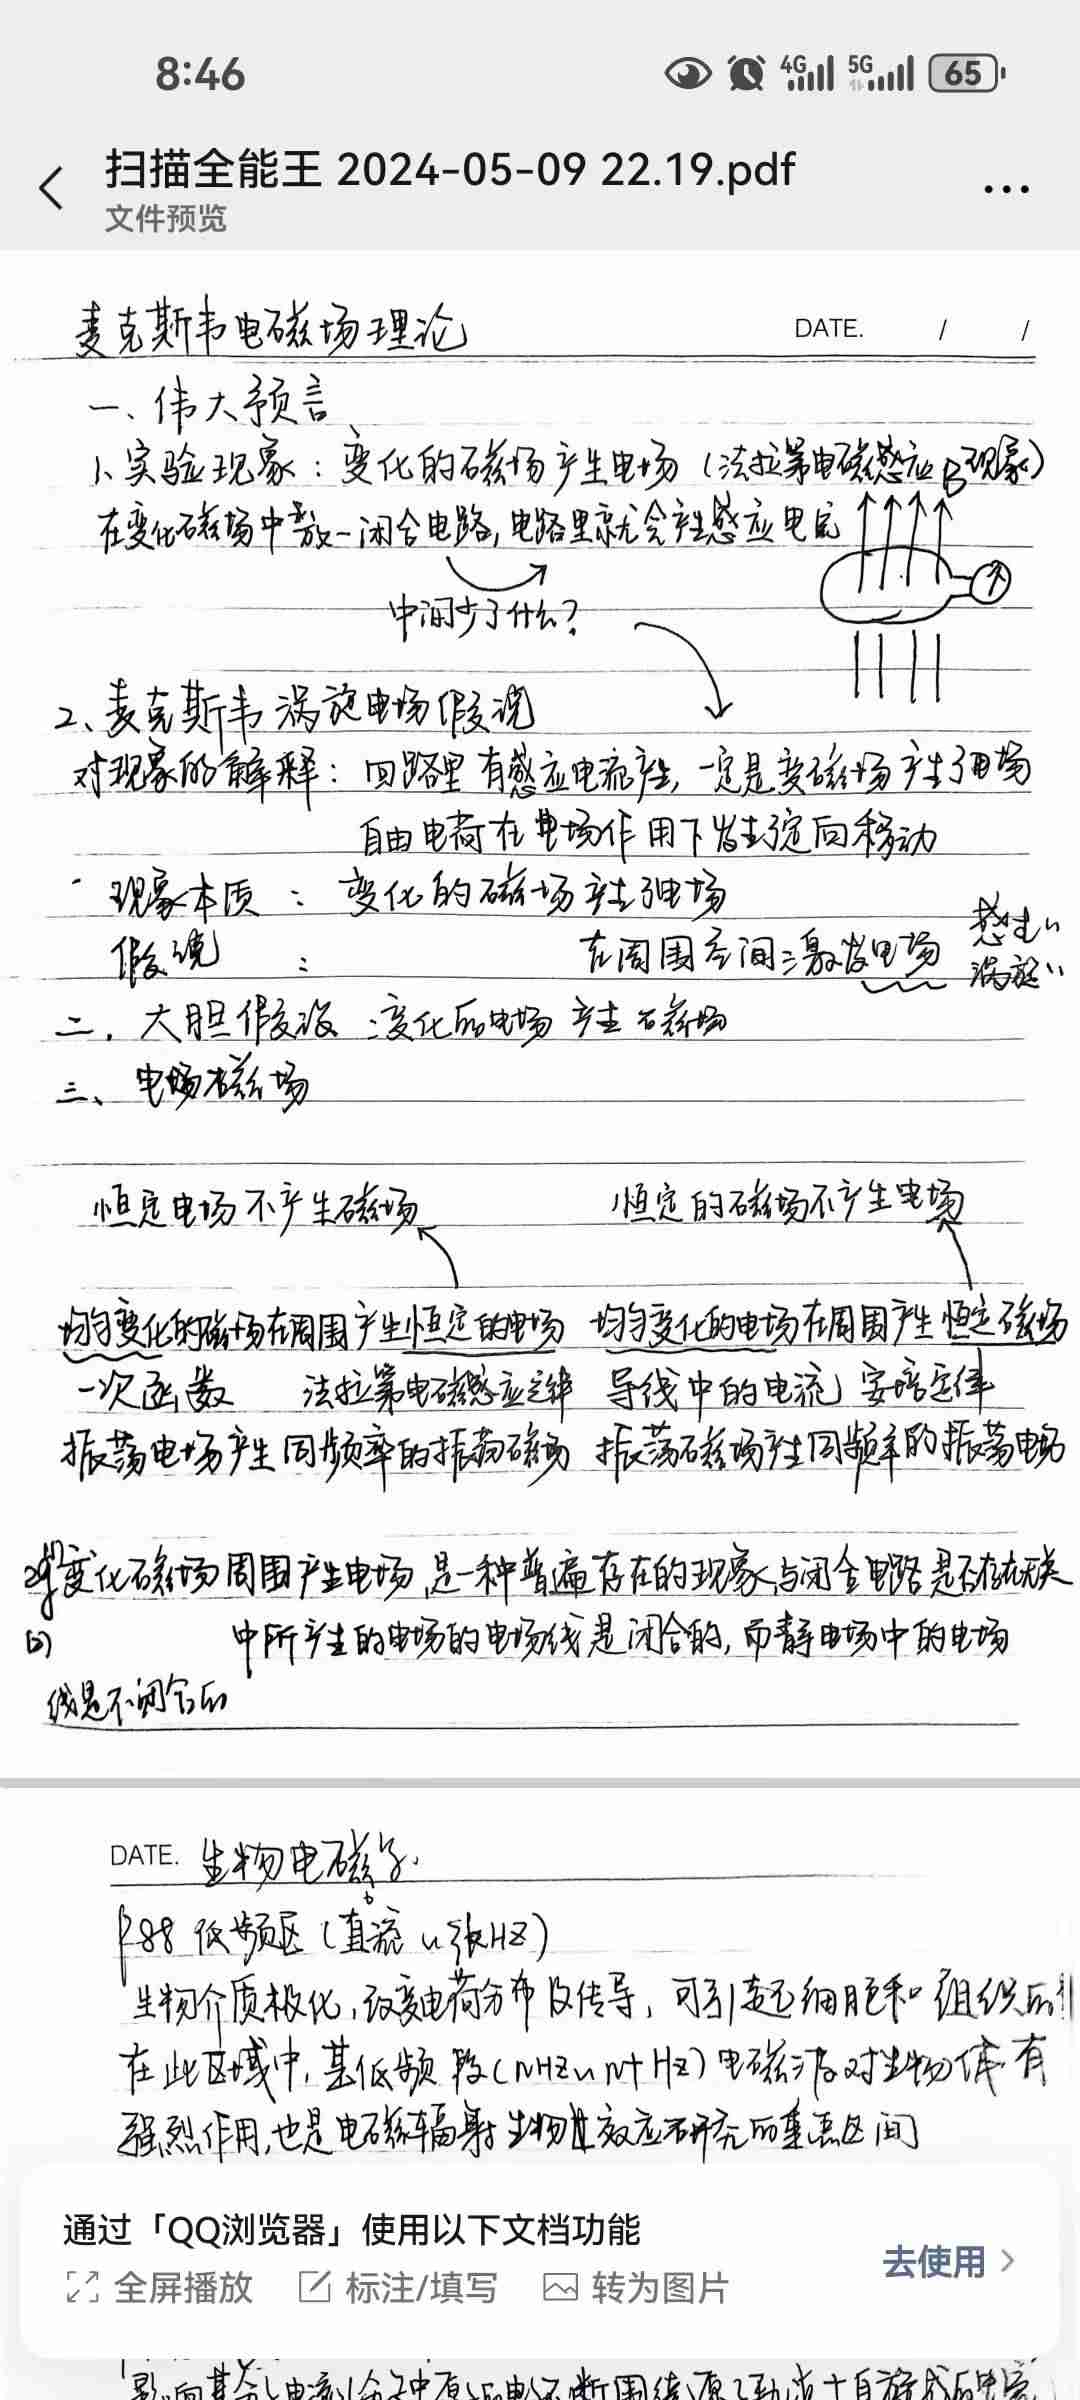 8:46
4G 5G 65
扫描全能王 2024-05-09 22.19.pdf
文件预览
麦克斯韦电磁场理论
DATE. / /
一、伟大预言
1、实验现象：变化的磁场产生电场（法拉第电磁感应现象）
B
在变化磁场中放一闭合电路,电路里就会产生感应电流
中间少了什么？
2、麦克斯韦涡旋电场假说
对现象的解释：回路里有感应电流产生,一定是变磁场产生了电场
自由电荷在电场作用下发生定向移动
现象本质：变化的磁场产生了电场
感生"
假说：在周围空间激发电场
涡旋"
二、大胆假设：变化的电场产生磁场
三、电场磁场
恒定电场不产生磁场 恒定的磁场不产生电场
均匀变化的磁场在周围产生恒定的电场 均匀变化的电场在周围产生恒定磁场
一次函数 法拉第电磁感应定律 导线中的电流 安培定律
振荡电场产生同频率的振荡磁场 振荡磁场产生同频率的振荡电场
变化磁场周围产生电场,是一种普遍存在的现象,与闭合电路是否存在无关
(2) 中所产生的电场的电场线是闭合的,而静电场中的电场
线是不闭合的
DATE. 生物电磁学.
P88 低频区（直流 HZ）
生物介质极化,改变电荷分布及传导,可引起细胞和组织的
在此区域中,其低频段(nHz n+Hz)电磁波对生物体有
强烈作用,也是电磁辐射生物效应研究的重点区间
通过「QQ浏览器」使用以下文档功能
去使用
全屏播放 标注/填写 转为图片